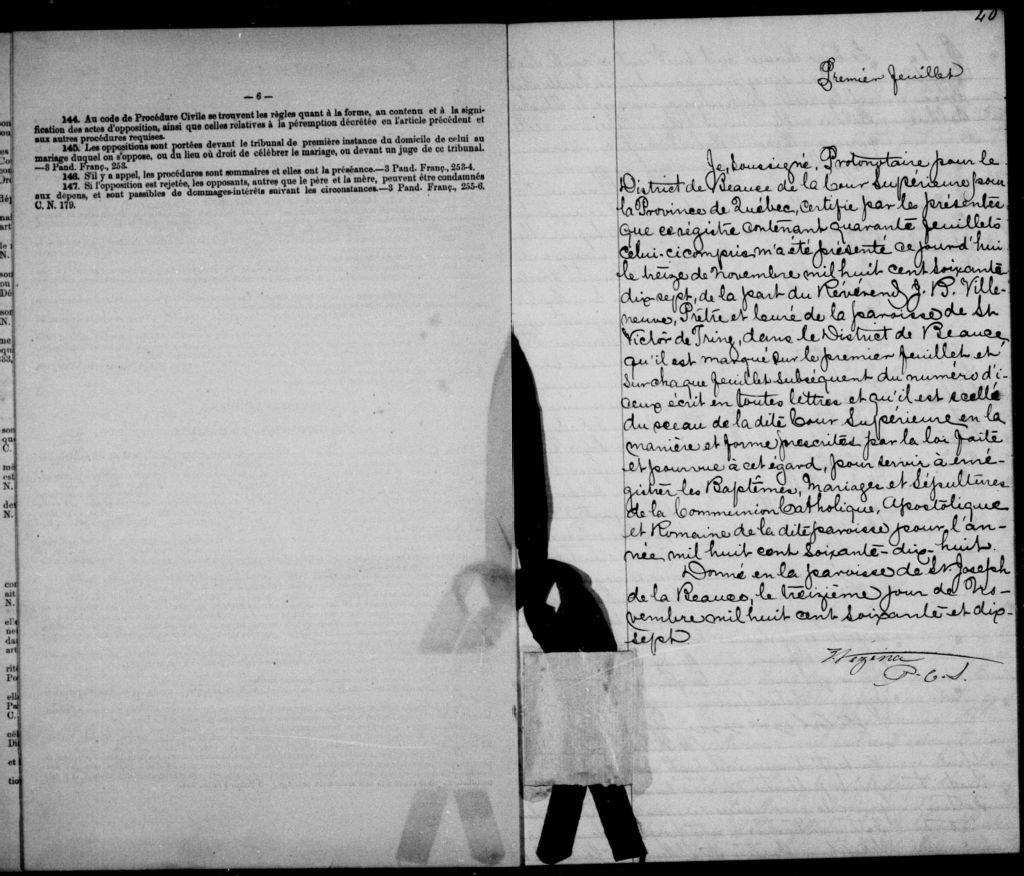 — 6 —
144. Au code de Procédure Civile se trouvent les règles quant à la forme, au contenu et à la signi-
fication des actes d'opposition, ainsi que celles relatives à la péremption décrétée en l'article précédent et
aux autres procédures requises.
145. Les oppositions sont portées devant le tribunal de première instance du domicile de celui au
mariage duquel on s'oppose, ou du lieu où droit de célébrer le mariage, ou devant un juge de ce tribunal.
—3 Pand. Franç., 253.
146. S'il y a appel, les procédures sont sommaires et elles ont la préséance.—3 Pand. Franç., 253-4.
147. Si l'opposition est rejetée, les opposants, autres que le père et la mère, peuvent être condamnés
aux dépens, et sont passibles de dommages-intérêts suivant les circonstances.—3 Pand. Franç., 255-6.
C. N. 179.
40
Premier feuillet
Je, Soussigné, Protonotaire pour le
District de Beauce de la Cour Supérieure pour
la Province de Québec, certifie par les présentes
que ce régistre contenant quarante feuillets
celui-ci compris, m'a été présenté ce jourd'hui
le treize de Novembre mil huit cent soixante
dix-sept, de la part du Révérend J. B. Ville-
neuve, Prêtre et Curé de la paroisse de St
Victor de Tring, dans le District de Beauce,
qu'il est marqué sur le premier feuillet et
sur chaque feuillet subséquent du numéro d'i-
ceux écrit en toutes lettres et qu'il est scellé
du sceau de la dite Cour Supérieure en la
manière et forme prescrites par la loi faite
et pourvue à cet égard, pour servir à enré-
gistrer les Baptêmes, Mariages et Sépultures
de la Communion Catholique, Apostolique
et Romaine de la dite paroisse pour l'an-
née mil huit cent soixante-dix-huit.
Donné en la paroisse de St. Joseph
de la Beauce, le treizième jour de No-
vembre mil huit cent soixante et dix-
sept
Vézina
P. C. S.